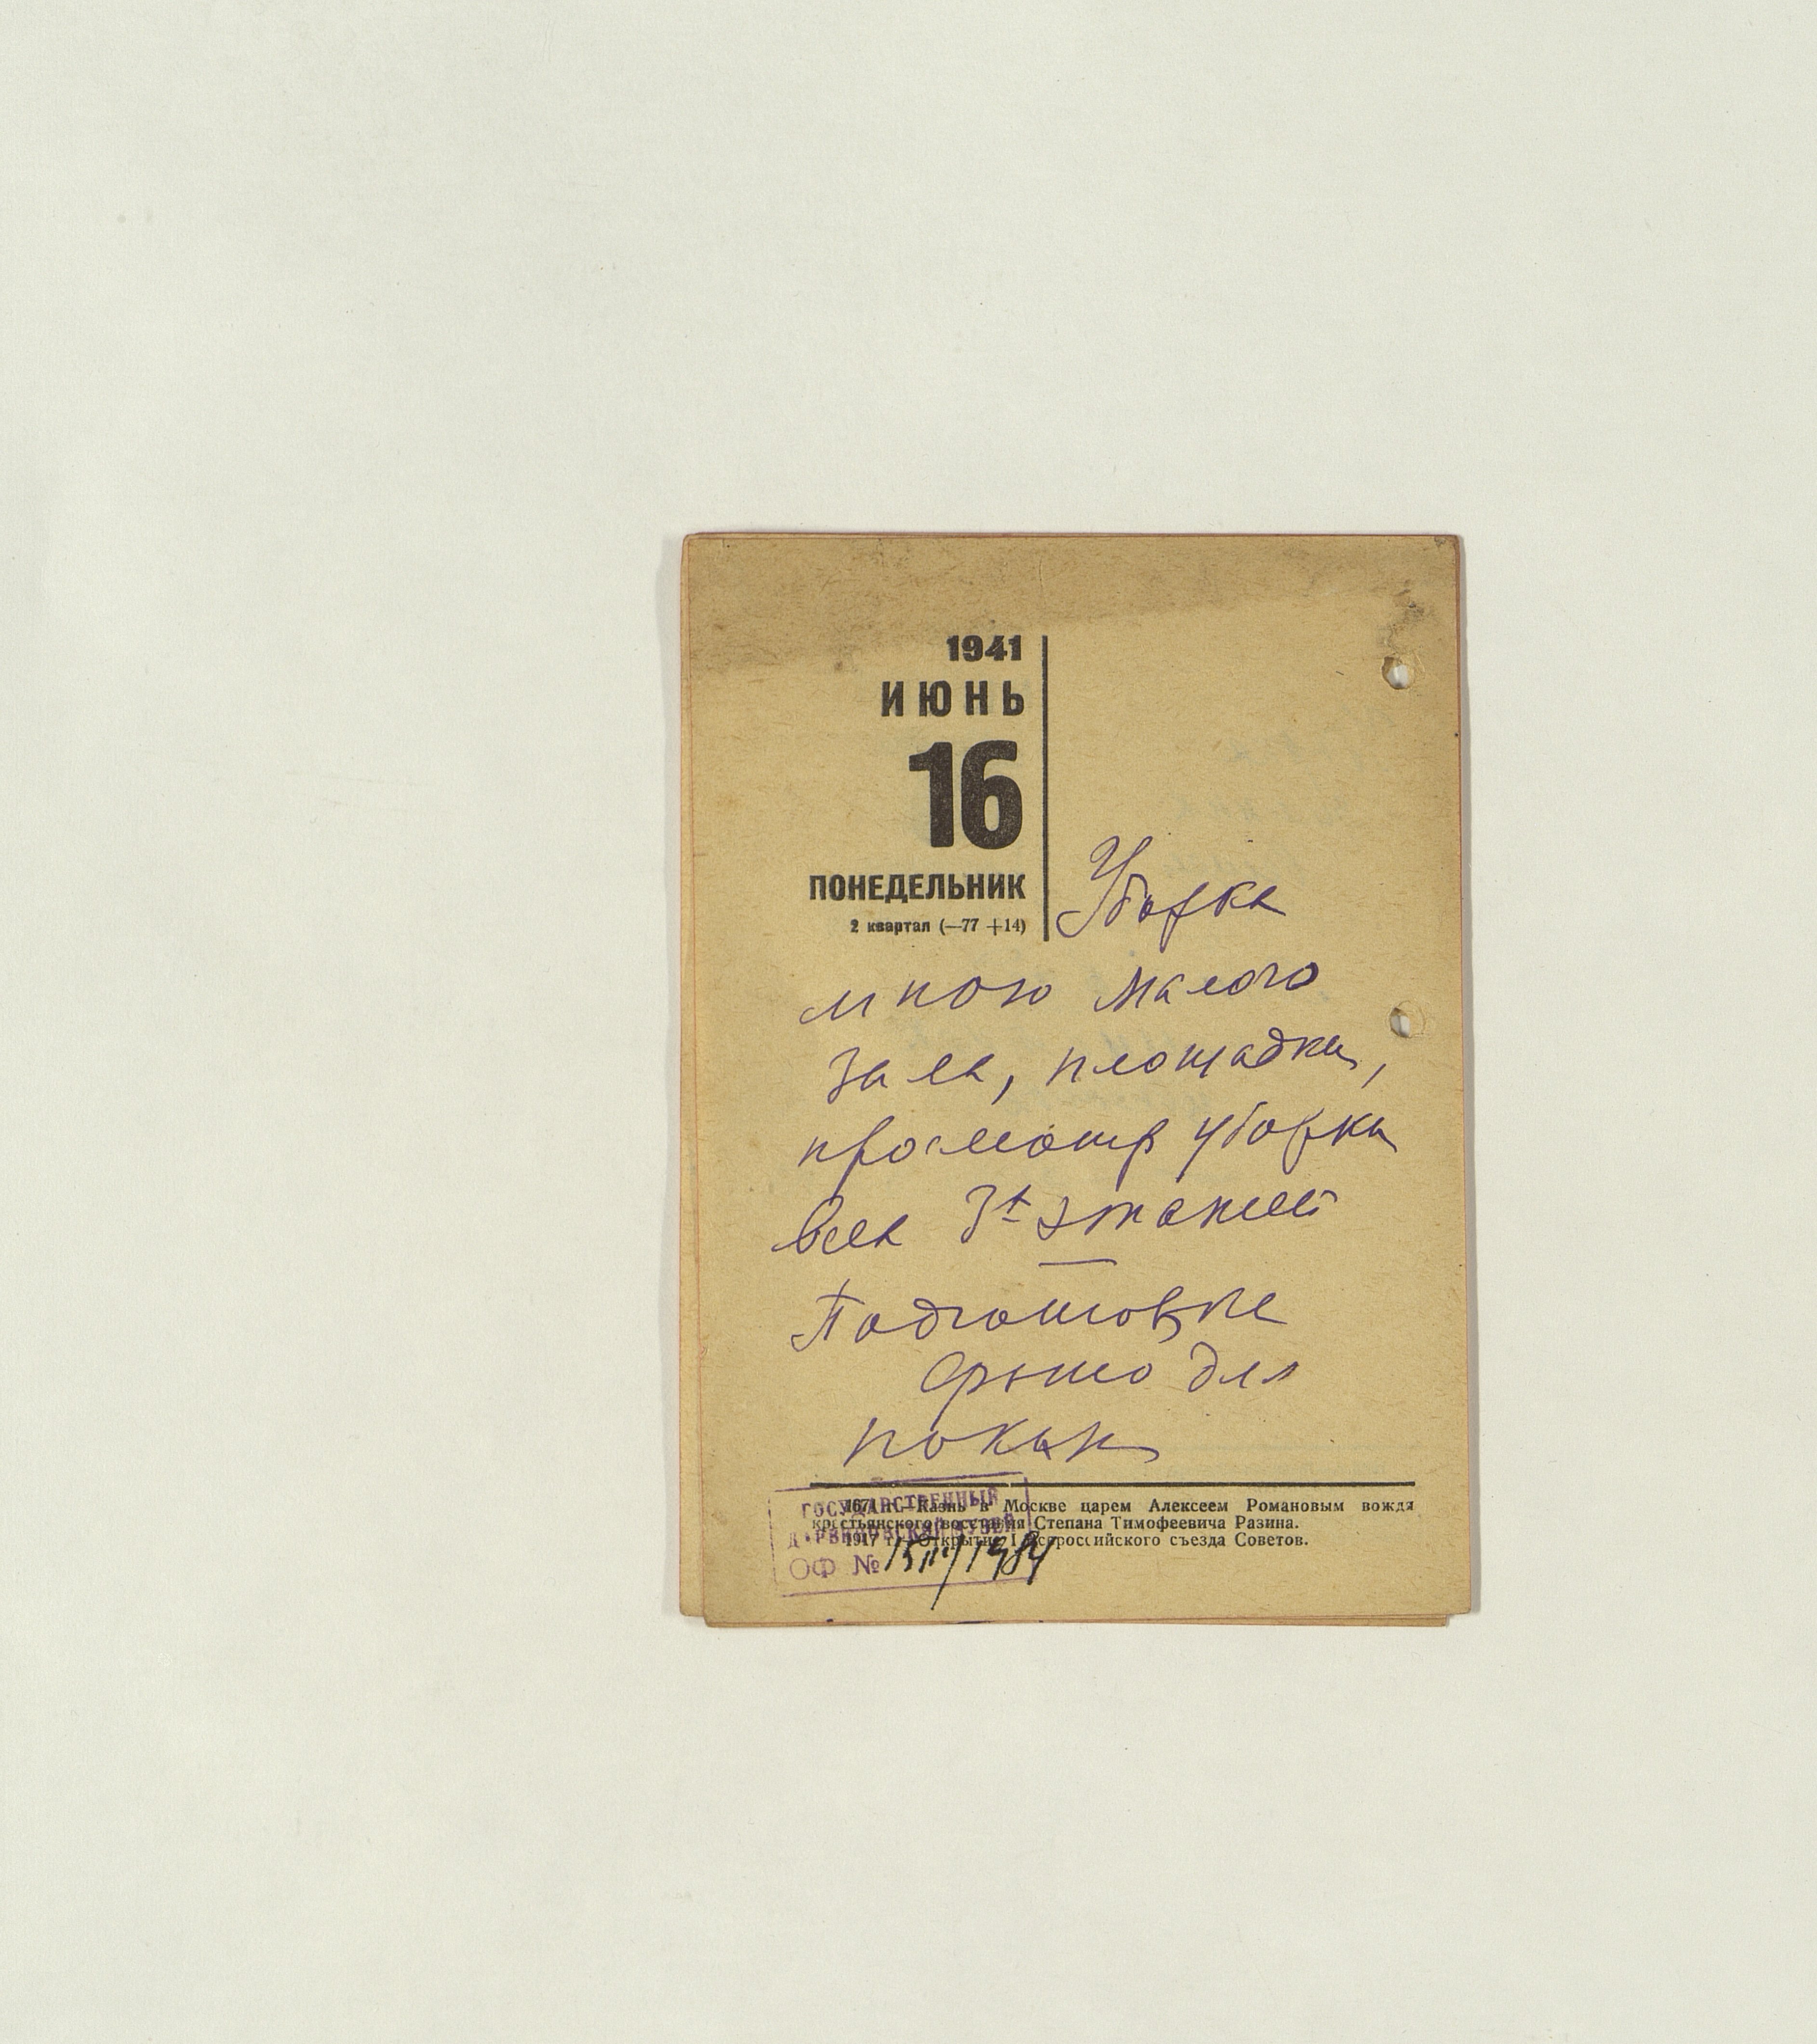 1941
ИЮНЬ
16
ПОНЕДЕЛЬНИК
2 квартал (—77 +14)
Уборка
мною малого
зала, площадки,
просмотр уборки
всех 3х этажей
Подготовка
фото для
1671 г.—Казнь в Москве царем Алексеем Романовым вождя
крестьянского восстания Степана Тимофеевича Разина.
1917 г.—Открытие I Всероссийского съезда Советов.
ГОСУДАРСТВЕННЫЙ
ДАРВИНОВСКИЙ МУЗЕЙ
ОФ №